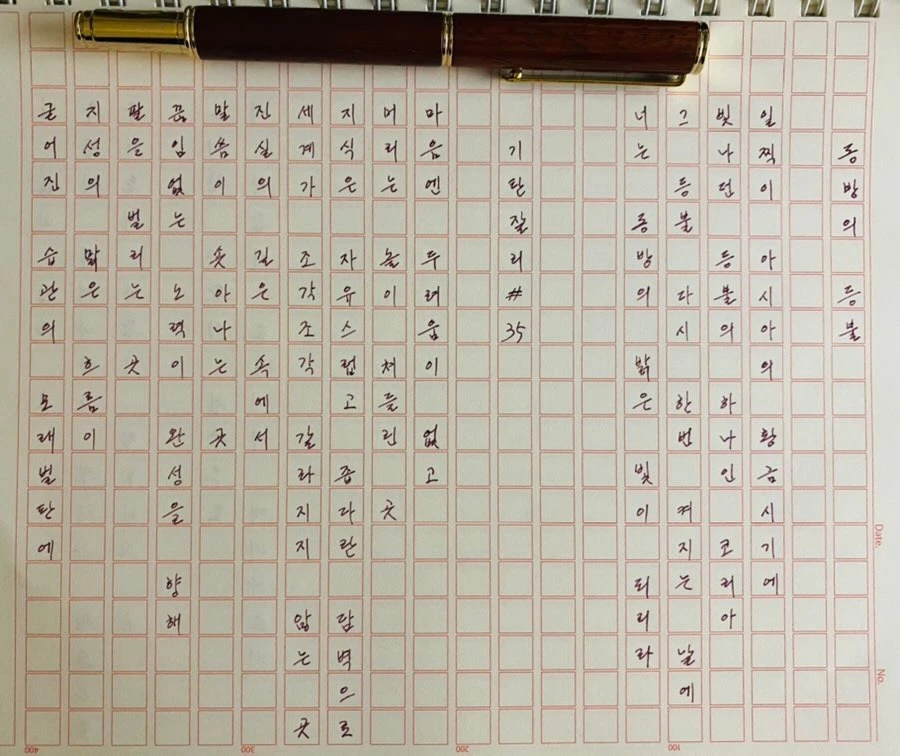 동방의 등불
일찍이 아시아의 황금시기에
빛나던 등불의 하나인 코리아
그 등불 다시 한번 켜지는 날에
너는 동방의 밝은 빛이 되리라
기탄잘리#35
마음엔 두려움이 없고
머리는 높이 쳐들린 곳
지식은 자유스럽고 좁다란 담벽으로
세계가 조각조각 갈라지지 않는 곳
진실의 깊은 속에서
말씀이 솟아나는 곳
끊임없는 노력이 완성을 향해
팔을 벌리는 곳
지성의 맑은 흐름이
굳어진 습관의 모래벌판에
Date.
No.
100
200
300
400